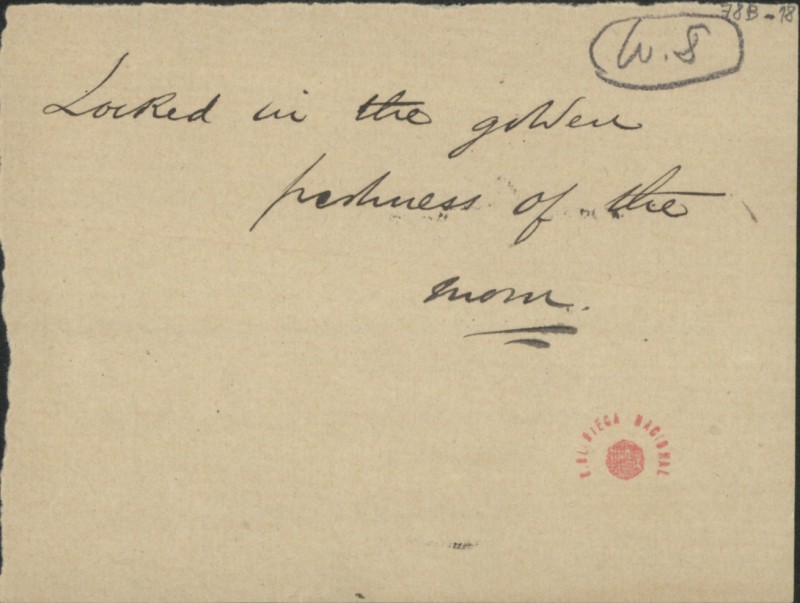 78B-18
W. S
Locked in the golden
freshness of the
morn.
BIBLIOTECA NACIONAL